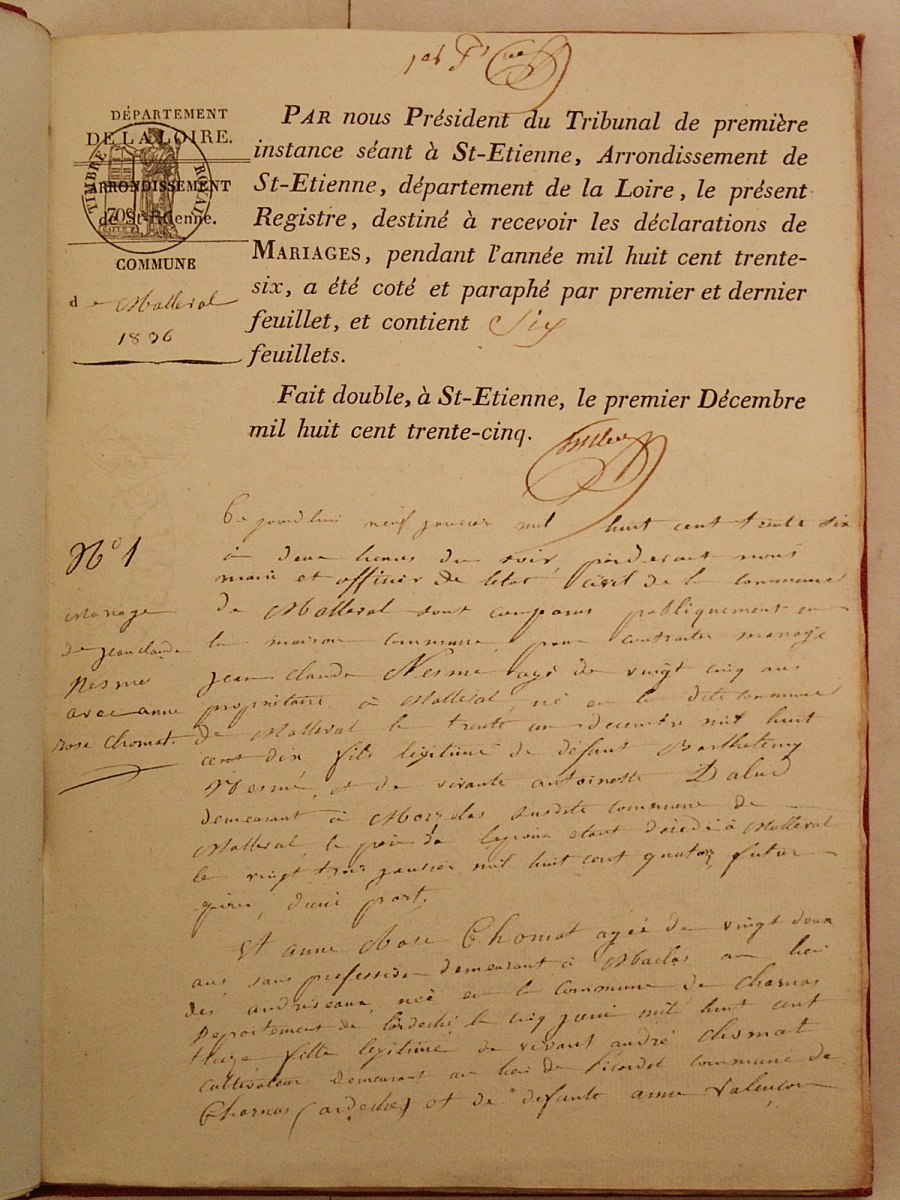 1er
DÉPARTEMENT
DE LA LOIRE.
TIMBRE ROYAL
ARRONDISSEMENT
de St-Etienne.
COMMUNE
de Malleval
1836
PAR nous Président du Tribunal de première
instance séant à St-Etienne, Arrondissement de
St-Etienne, département de la Loire, le présent
Registre, destiné à recevoir les déclarations de
MARIAGES, pendant l'année mil huit cent trente-
six, a été coté et paraphé par premier et dernier
feuillet, et contient Six
feuillets.
Fait double, à St-Etienne, le premier Décembre
mil huit cent trente-cinq.
No 1
Mariage
de jean claude
Nesme
avec anne
rose Chomat.
Ce jourd'hui neuf janvier mil huit cent trente six
à deux heures du soir, pardevant nous
maire et officier de l'état civil de la commune
de Malleval sont comparus publiquement en
la maison commune, pour contracter mariage
jean claude Nesme agé de vingt cinq ans
propriétaire à Malleval, né en la dite commune
de Malleval le trente un decembre mil huit
cent dix fils légitime de défunt Barthelemy
Nesme, et de vivante antoinette
demeurant à susdite commune de
Malleval, le père étant décédé à Malleval
le vingt trois janvier mil huit cent quatorze futur
d'une part.
Et anne Rose Chomat agée de vingt deux
ans sans profession demeurant à Maclas au lieu
des née en la commune de Charnas
Departement de l'ardeche, le cinq juin mil huit cent
treize fille legitime de vivant andré Chomat
cultivateur demeurant au lieu de Picardel commune de
Charnas (ardeche) et de defunte anne Valençon